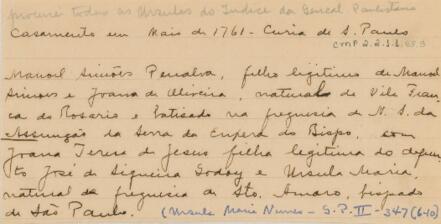 procurei todas as Ursulas do Indice da Geneal Paulistana
Casamento em Maio de 1761 - Curia de S. Paulo
CMP 2.2.1.1.
Manoel Simões Penalva, filho legitimo de Manoel
Simoes e Joana de Oliveira, natural de Vila Fran
ca do Rosario e batisado na freguesia de N. S. da
Assunção da Serra da Enxera do Bispo, com
Joana Teresa de Jesus filha legitima do defun
to José de Siqueira Godoy e Ursula Maria,
natural da freguesia de Sto. Amaro, bispado
de São Paulo. (Ursula Maria Nunes - S.P. II - 347 (6-10)